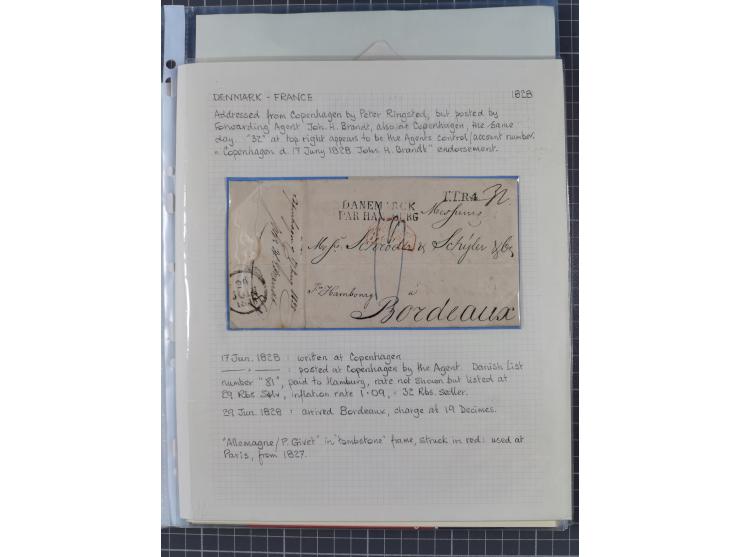 DENMARK - FRANCE 1828
Addressed from Copenhagen by Peter Ringsted, but posted by
Forwarding Agent Joh. H. Brandt, also at Copenhagen, the same
day. "32" at top right appears to be the Agents control/account number.
"Copenhagen d. 17 Juny 1828 John. H. Brandt" endorsement.
DANEMARCK
PAR HAMBURG
T.T.R.4
32
Messrs. Schröder & Schÿler & Co.
à
Bordeaux
17 Jun. 1828 : written at Copenhagen
: posted at Copenhagen by the Agent. Danish List
number "81", paid to Hamburg, rate not shown but listed at
29 Rbs. Sølv, inflation rate 1·09, = 32 Rbs. sedler.
29 Jun. 1828 : arrived Bordeaux, charge at 19 Decimes.
"Allemagne/P. Givet" in "tombstone" frame, struck in red: used at
Paris, from 1827.